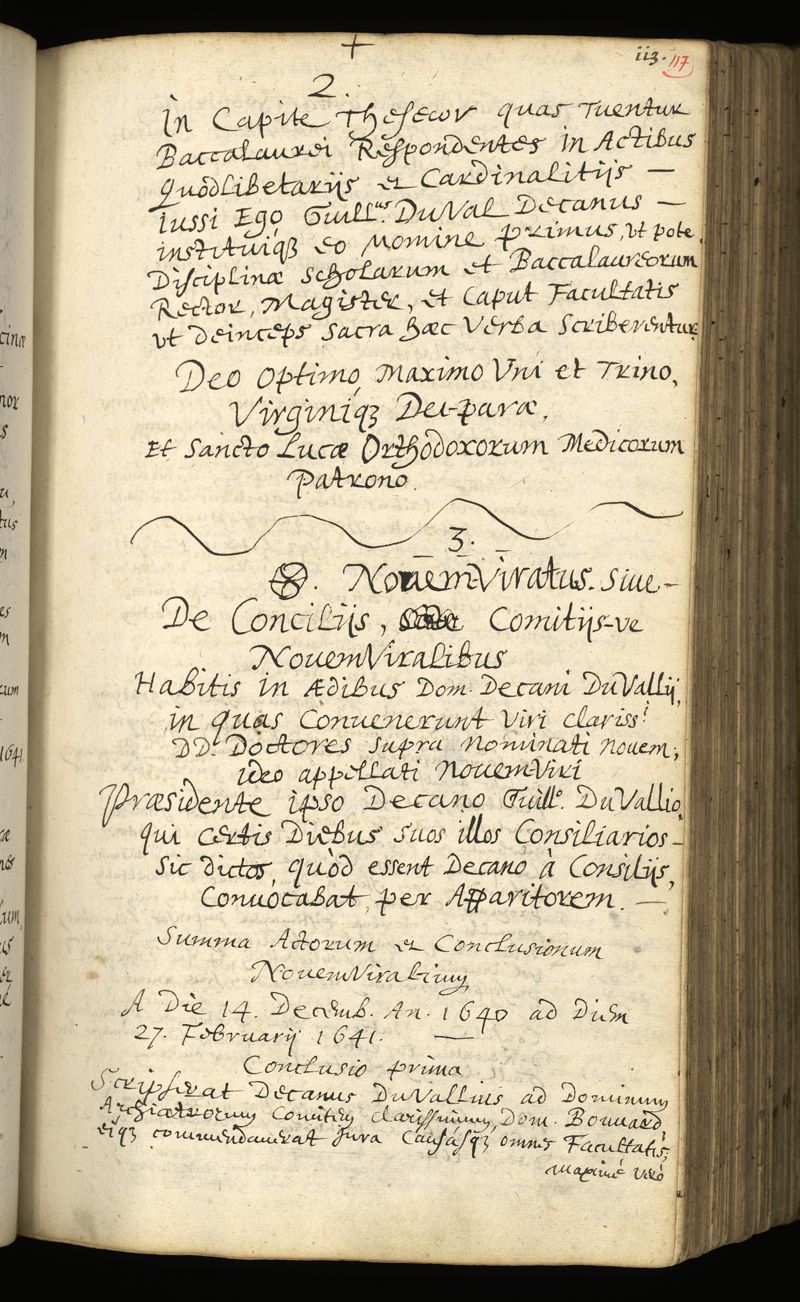 +
iij. 117
2.
In Capite Thesecor quas Tuentur
Baccalaurei Respondentes in Actibus
Quodlibetarijs et Cardinalitijs —
Iussi Ego Guill.us DuVal Decanus —
instituiqz eo Nomine primus, ut pote
Disciplinæ scholarum et Baccalaureorum
Rector, Magister, et Caput Facultatis
ut deinceps sacra hæc Verba Scriberentur
Deo Optimo, Maximo Uni et Trino,
Virginiqz Dei-paræ,
Et Sancto Lucæ Orthodoxorum Medicorum
Patrono.
3.
NouemViratus. siue-
De Concilijs, Comitijs-ve
NouemViralibus
Habitis in Ædibus Dom. Decani DuVallij,
in quas Convenerunt Viri clariss.i
DD. Doctores supra nominati novem,
ideo appellati NouemViri
Præsidente ipso Decano Guill.o DuVallio,
qui certis Diebus suos illos Consiliarios-
sic dictos, quòd essent Decano à Consilijs,
Convocabat, per Apparitorem. —
Summa Actorum et Conclusionum
NouemViralium
A Die 14. Decemb. An. 1640 ad Diem
27. Februarij 1641. —
Conclusio prima
Scripserat Decanus DuVallius ad Dominum
Archiatrorum Comitem clarissimum, Dom. Bouuard
eiqz commendauerat Iura Causasqz omnes Facultatis,
maximè verò